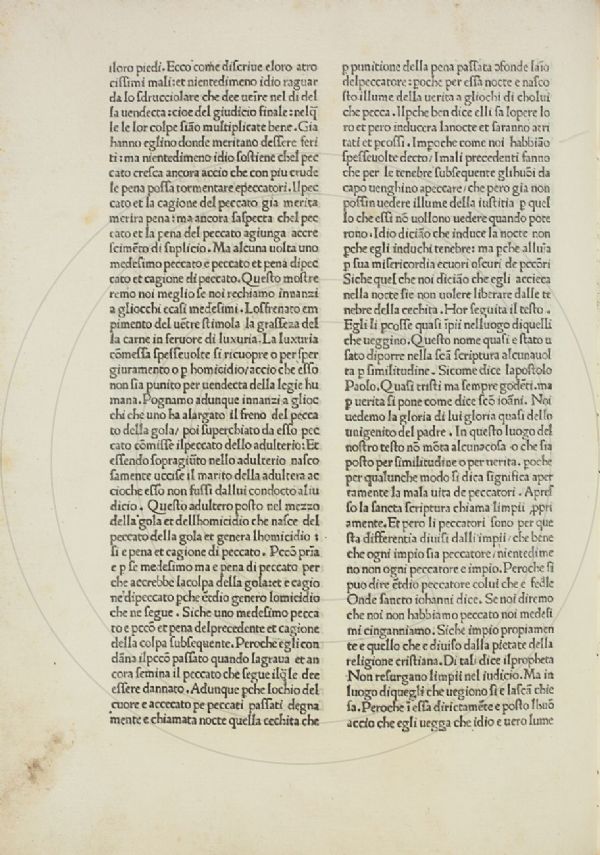 iloro piedi. Ecco come discriue eloro atro
cissimi mali: et nientedimeno idio raguar
da lo sdrucciolare che dee uẽire nel di del
la uendecta: cioe del giudicio finale: nelq̃
le le lor colpe sião multiplicate bene. Gia
hanno eglino donde meritano dessere feri
ti: ma nientedimeno idio sostiene chel pec
cato cresca ancora accio che con piu crude
le pena possa tormentare epeccatori. Il pec
cato et la cagione del peccato gia merita
merira pena: ma ancora saspecta chel pec
cato et la pena del peccato agiunga accre
scimẽto di suplicio. Ma alcuna uolta uno
medesimo peccato e peccato et pena di pec
cato et cagione di peccato. Questo mostre
remo noi meglio se noi rechiamo innanzi
a gliocchi ecasi medesimi. Losfrenato em
pimento del uẽtre stimola la grasseza del
la carne in feruore di luxuria. La luxuria
cõmessa spesseuolte si ricuopre o per sper
giuramento o p homicidio/accio che esso
non sia punito per uendecta della legie hu
mana. Pognamo adunque innanzi a glioc
chi che uno ha alargato il freno del pecca
to della gola/ poi superchiato da esso pec
cato cõmisse ilpeccato dello adulterio: Et
essendo sopragiũto nello adulterio nasco
samente uccise il marito della adultera ac
cioche esso non fussi dallui condocto al iu
dicio. Questo adultero posto nel mezzo
della gola et dellhomicidio che nasce del
peccato della gola et genera lhomicidio:
si e pena et cagione di peccato. Pccõ pria
e p se medesimo ma e pena di peccato per
che accrebbe lacolpa della gola: et e cagio
ne dipeccato pche etdio genero lomicidio
che ne segue. Siche uno medesimo pecca
to e pccõ et pena delprecedente et cagione
della colpa subsequente. Peroche egli con
dãna ilpccõ passato quando lagraua et an
cora semina il peccato che segue ilq̃le dee
essere dannato. Adunque pche lochio del
cuore e accecato pe peccati passati degna
mente e chiamata nocte quella cechita che
p punitione della pena passata ɔfonde laĩo
delpeccatore: poche per essa nocte e nasco
sto illume della uerita a gliochi di cholui
che pecca. Ilpche ben dice elli sa lopere lo
ro et pero inducera lanocte et saranno atri
tati et pcossi. Impoche come noi habbião
spesseuolte decto/ I mali precedenti fanno
che per le tenebre subsequente glihuõi da
capo uenghino apeccare/ che pero gia non
possin uedere illume della iustitia p quel
lo che essi nõ uollono uedere quando pote
rono. Idio dicião che induce la nocte non
pche egli induchi tenebre: ma pche alluĩa
p sua misericordia ecuori oscuri de peccõri
Siche quel che noi dicião che egli accieca
nella nocte sie non uolere liberare dalle te
nebre della cechita. Hor seguita il testo.
Egli li pcosse quasi ĩpii nelluogo diquelli
che ueggino. Questo nome quasi e stato u
sato diporre nella scã scriptura alcunauol
ta p similitudine. Sicome dice lapostolo
Paolo. Quasi tristi ma sempre godẽti. ma
p uerita si pone come dice scõ ioãni. Noi
uedemo la gloria di lui gloria quasi dello
unigenito del padre. In questo luogo del
nostro testo nõ mõta alcunacosa o che sia
posto per similitudine o per uerita. poche
per qualunche modo si dica significa aper
tamente la mala uita de peccatori. Apres
so la sancta scriptura chiama limpii ppri
amente. Et pero li peccatori sono per que
sta differentia diuisi dalli impii/ che bene
che ogni impio sia peccatore/nientedime
no non ogni peccatore e impio. Peroche si
puo dire etdio peccatore colui che e fedle
Onde sancto iohanni dice. Se noi diremo
che noi non habbiamo peccato noi medesi
mi cinganniamo. Siche impio propiamen
te e quello che e diuiso dalla pietate della
religione cristiana. Di tali dice ilpropheta
Non resurgano limpii nel iudicio. Ma in
luogo diquegli che uegiono si e lascã chie
sa. Peroche ĩ essa dirictamẽte e posto lhuõ
accio che egli uegga che idio e uero lume